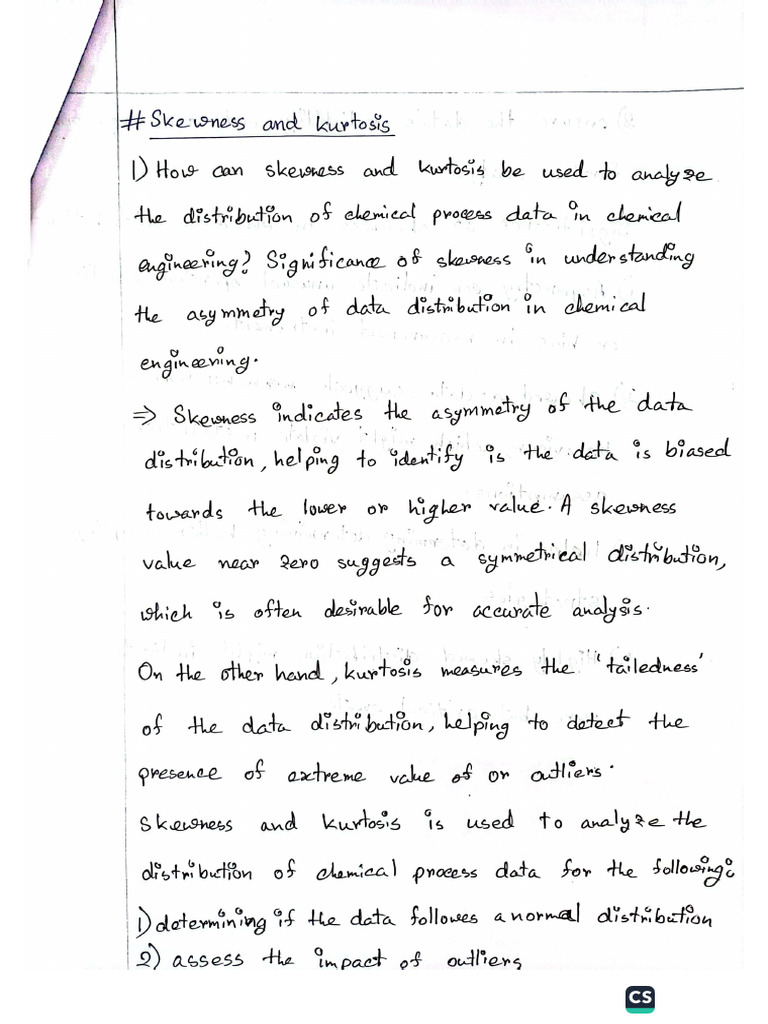 # Skewness and kurtosis
1) How can skewness and kurtosis be used to analyze
the distribution of chemical process data in chemical
engineering? Significance of skewness in understanding
the asymmetry of data distribution in chemical
engineering.
⇒ Skewness indicates the asymmetry of the data
distribution, helping to identify is the data is biased
towards the lower or higher value. A skewness
value near zero suggests a symmetrical distribution,
which is often desirable for accurate analysis.
On the other hand, kurtosis measures the 'tailedness'
of the data distribution, helping to detect the
presence of extreme value of or outliers.
Skewness and kurtosis is used to analyze the
distribution of chemical process data for the following:
1) determining if the data followes a normal distribution
2) assess the impact of outliers
CS